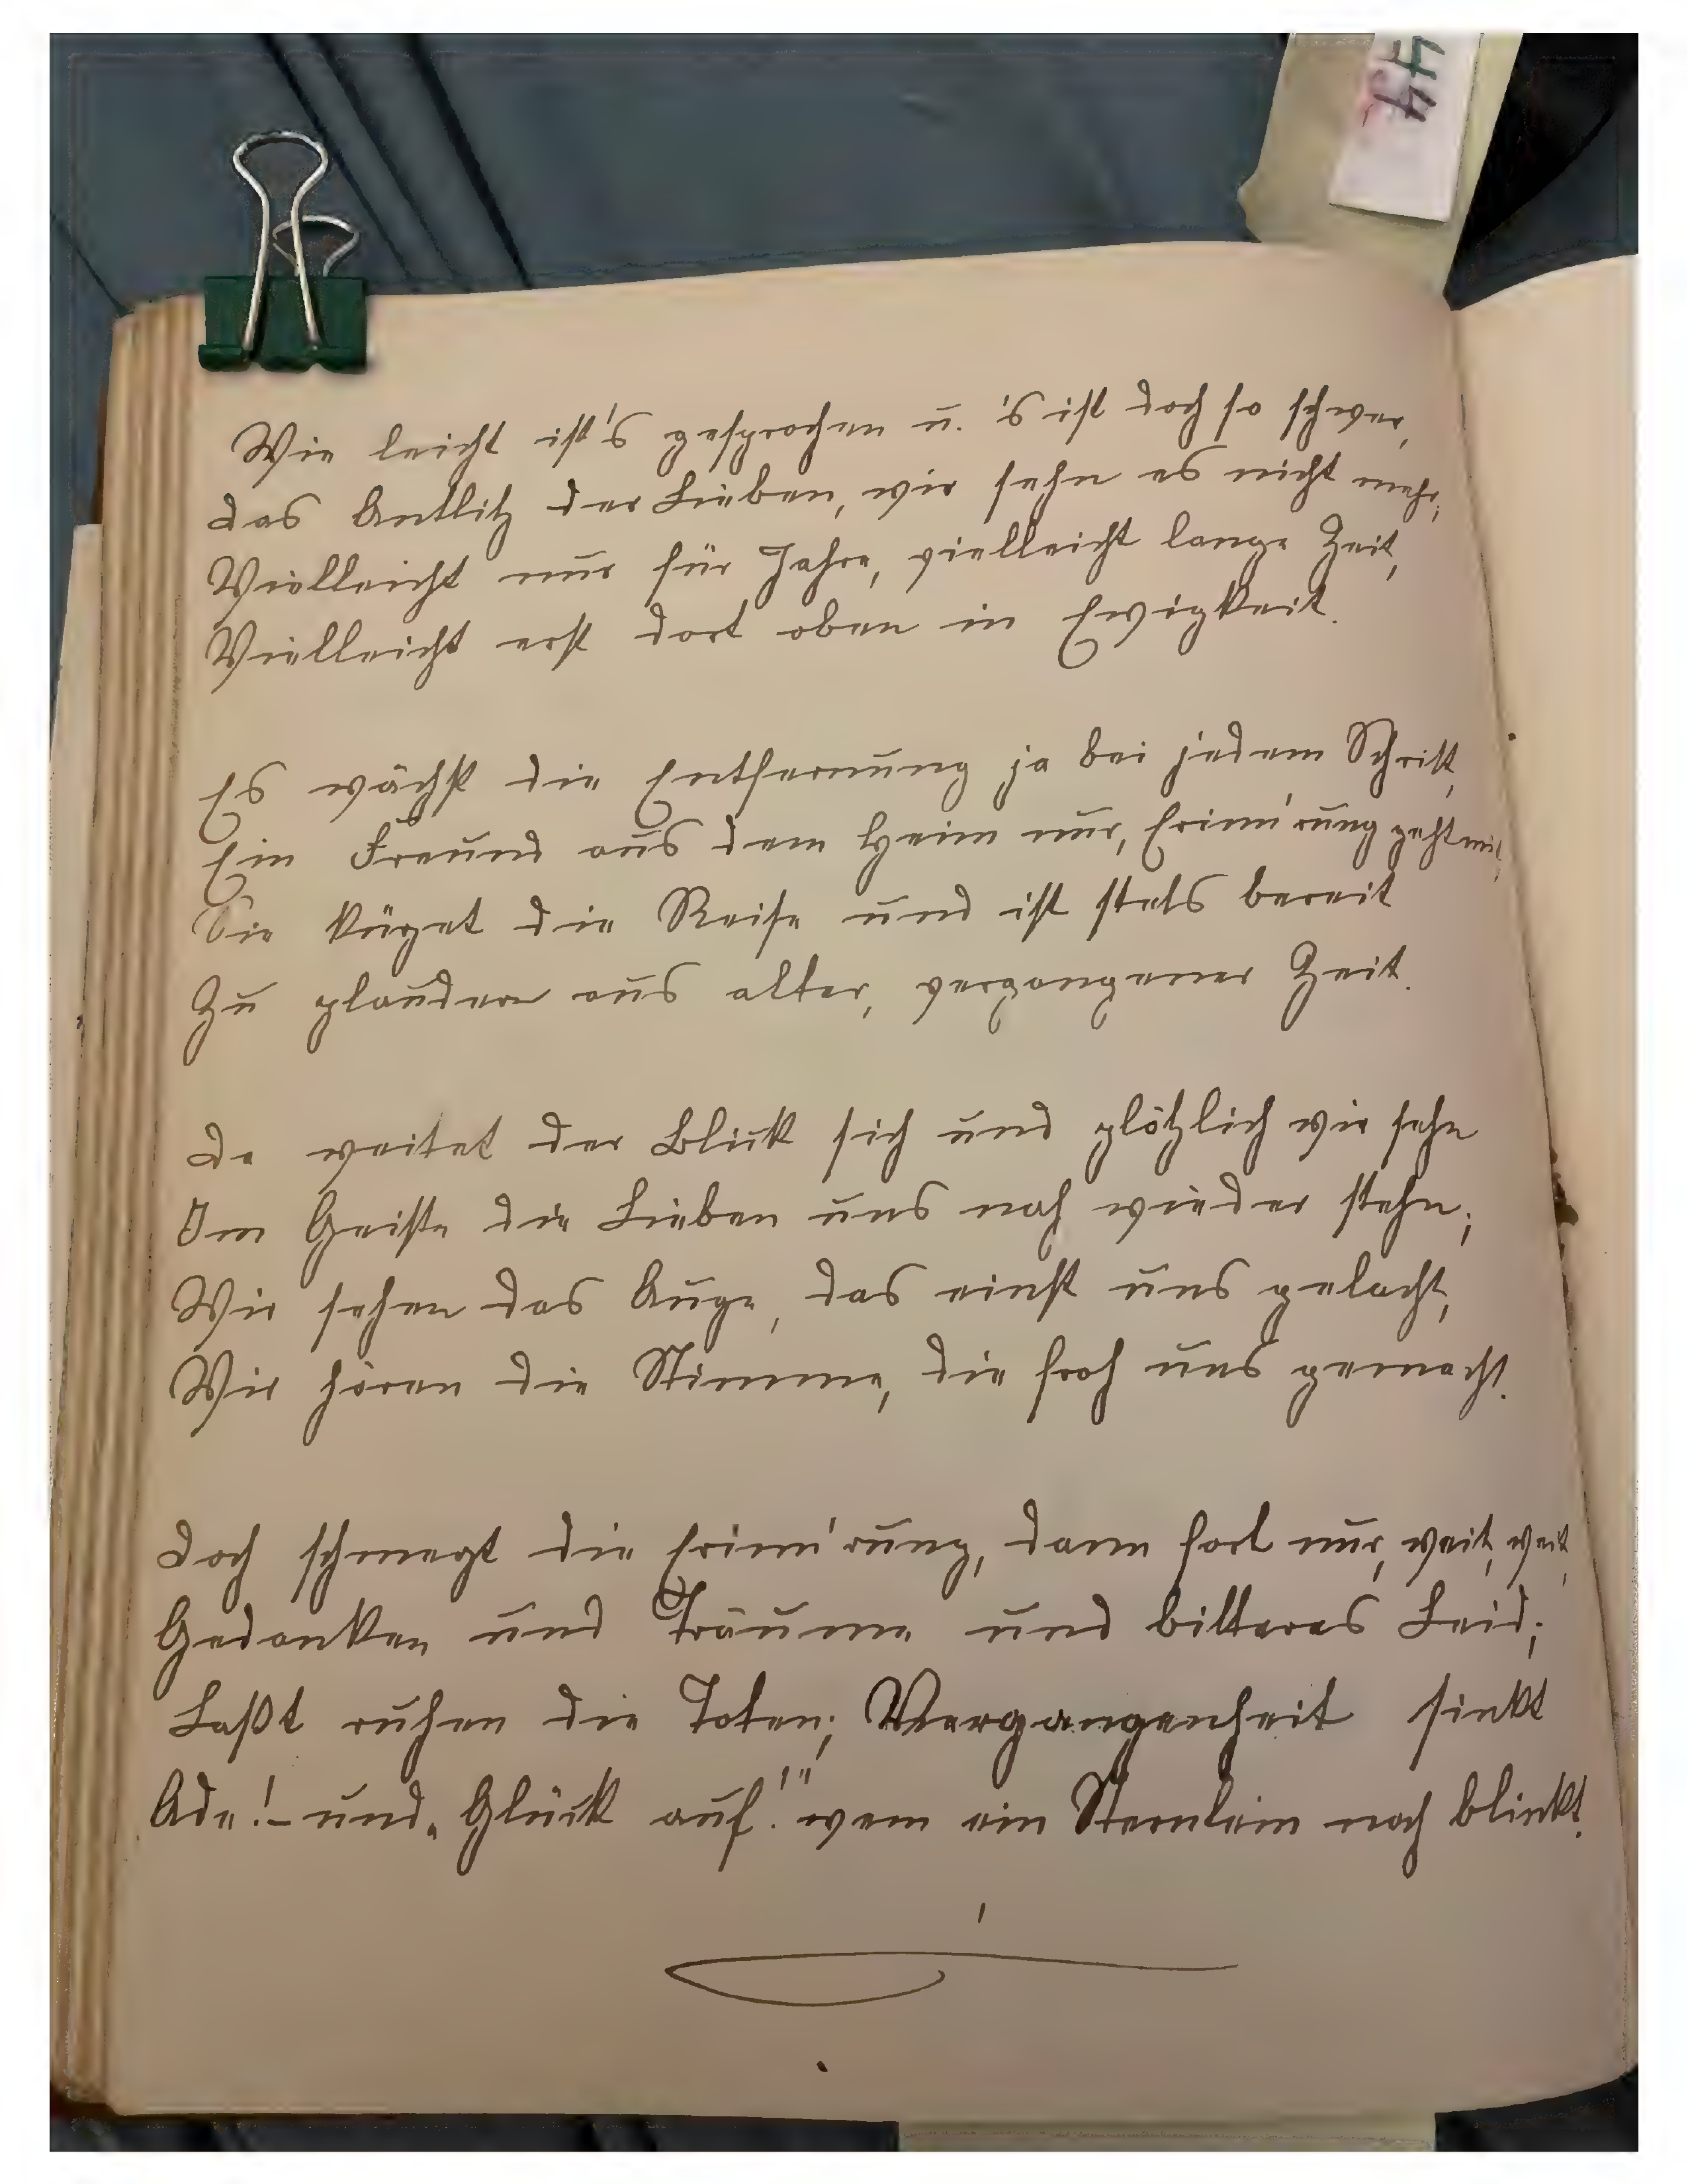 44
Wie leicht ist's gesprochen u. 's ist doch so schwer,
das Antlitz der Lieben, wir sehn es nicht mehr;
Vielleicht nur für Jahre, vielleicht lange Zeit,
Vielleicht erst dort oben in Ewigkeit.
Es wächst die Entfernung ja bei jedem Schritt,
Ein Freund aus dem Heim nur, Erinn'rung geht mit,
Sie kürzet die Reise und ist stets bereit
Zu plaudern aus alter, vergangener Zeit.
Da weitet der Blick sich und plötzlich wir sehn
Im Geiste die Lieben uns nah wieder stehn;
Wir sehen das Auge, das einst uns gelacht,
Wir hören die Stimme, die froh uns gemacht.
Doch schmerzt die Erinn'rung, dann fort nur, weit, weit,
Gedanken und Träume und bitteres Leid;
Laßt ruhen die Toten; Vergangenheit sinkt
Ade! - und „Glück auf!" wem ein Sternlein noch blinkt.